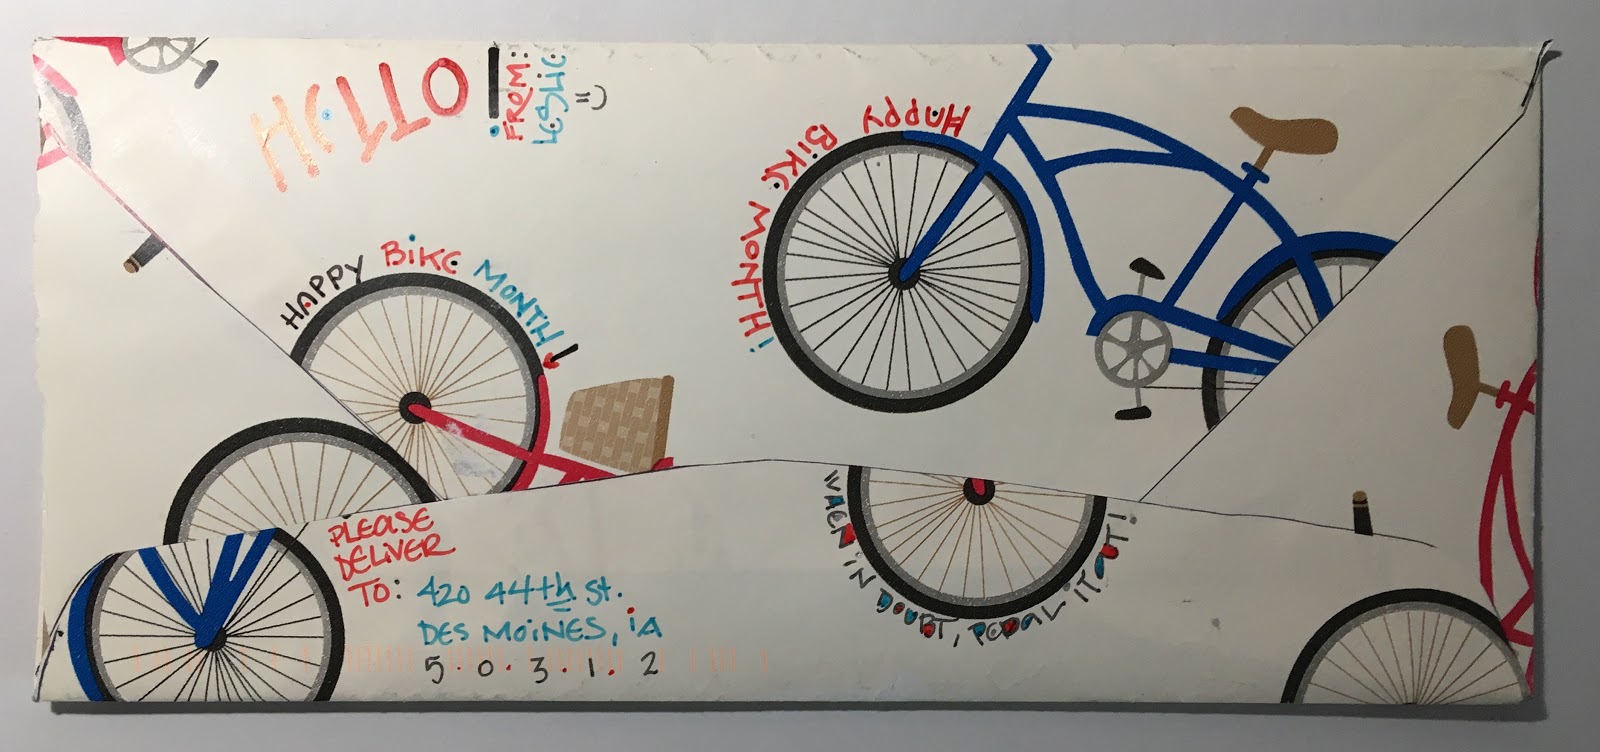 HELLO!
FROM:
LESLIE
=)
HAPPY BIKE MONTH!
HAPPY BIKE MONTH!
PLEASE
DELIVER
TO: 420 44th St.
DES MOINES, iA
5.0.3.1.2
WHEN iN DOUBT, PEDAL iT OUT!